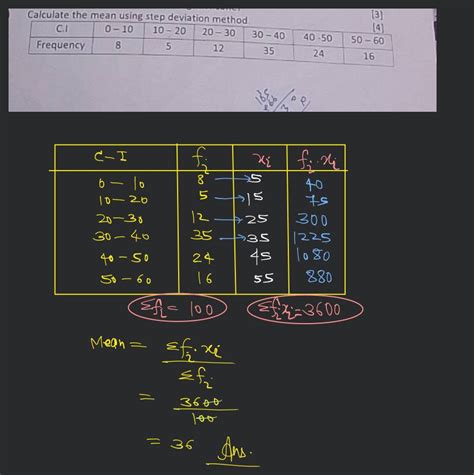 Calculate the mean using step deviation method
[3]
[4]
C.I 0 – 10 10 – 20 20 – 30 30 – 40 40 -50 50 – 60
Frequency 8 5 12 35 24 16
C-I fi xi fi.xi
0 – 10 8 → 5 40
10 – 20 5 → 15 75
20 – 30 12 → 25 300
30 – 40 35 → 35 1225
40 – 50 24 45 1080
50 – 60 16 55 880
Σfi = 100 Σfixi = 3600
Mean = Σfi.xi
Σfi
= 3600
100
= 36 Ans.